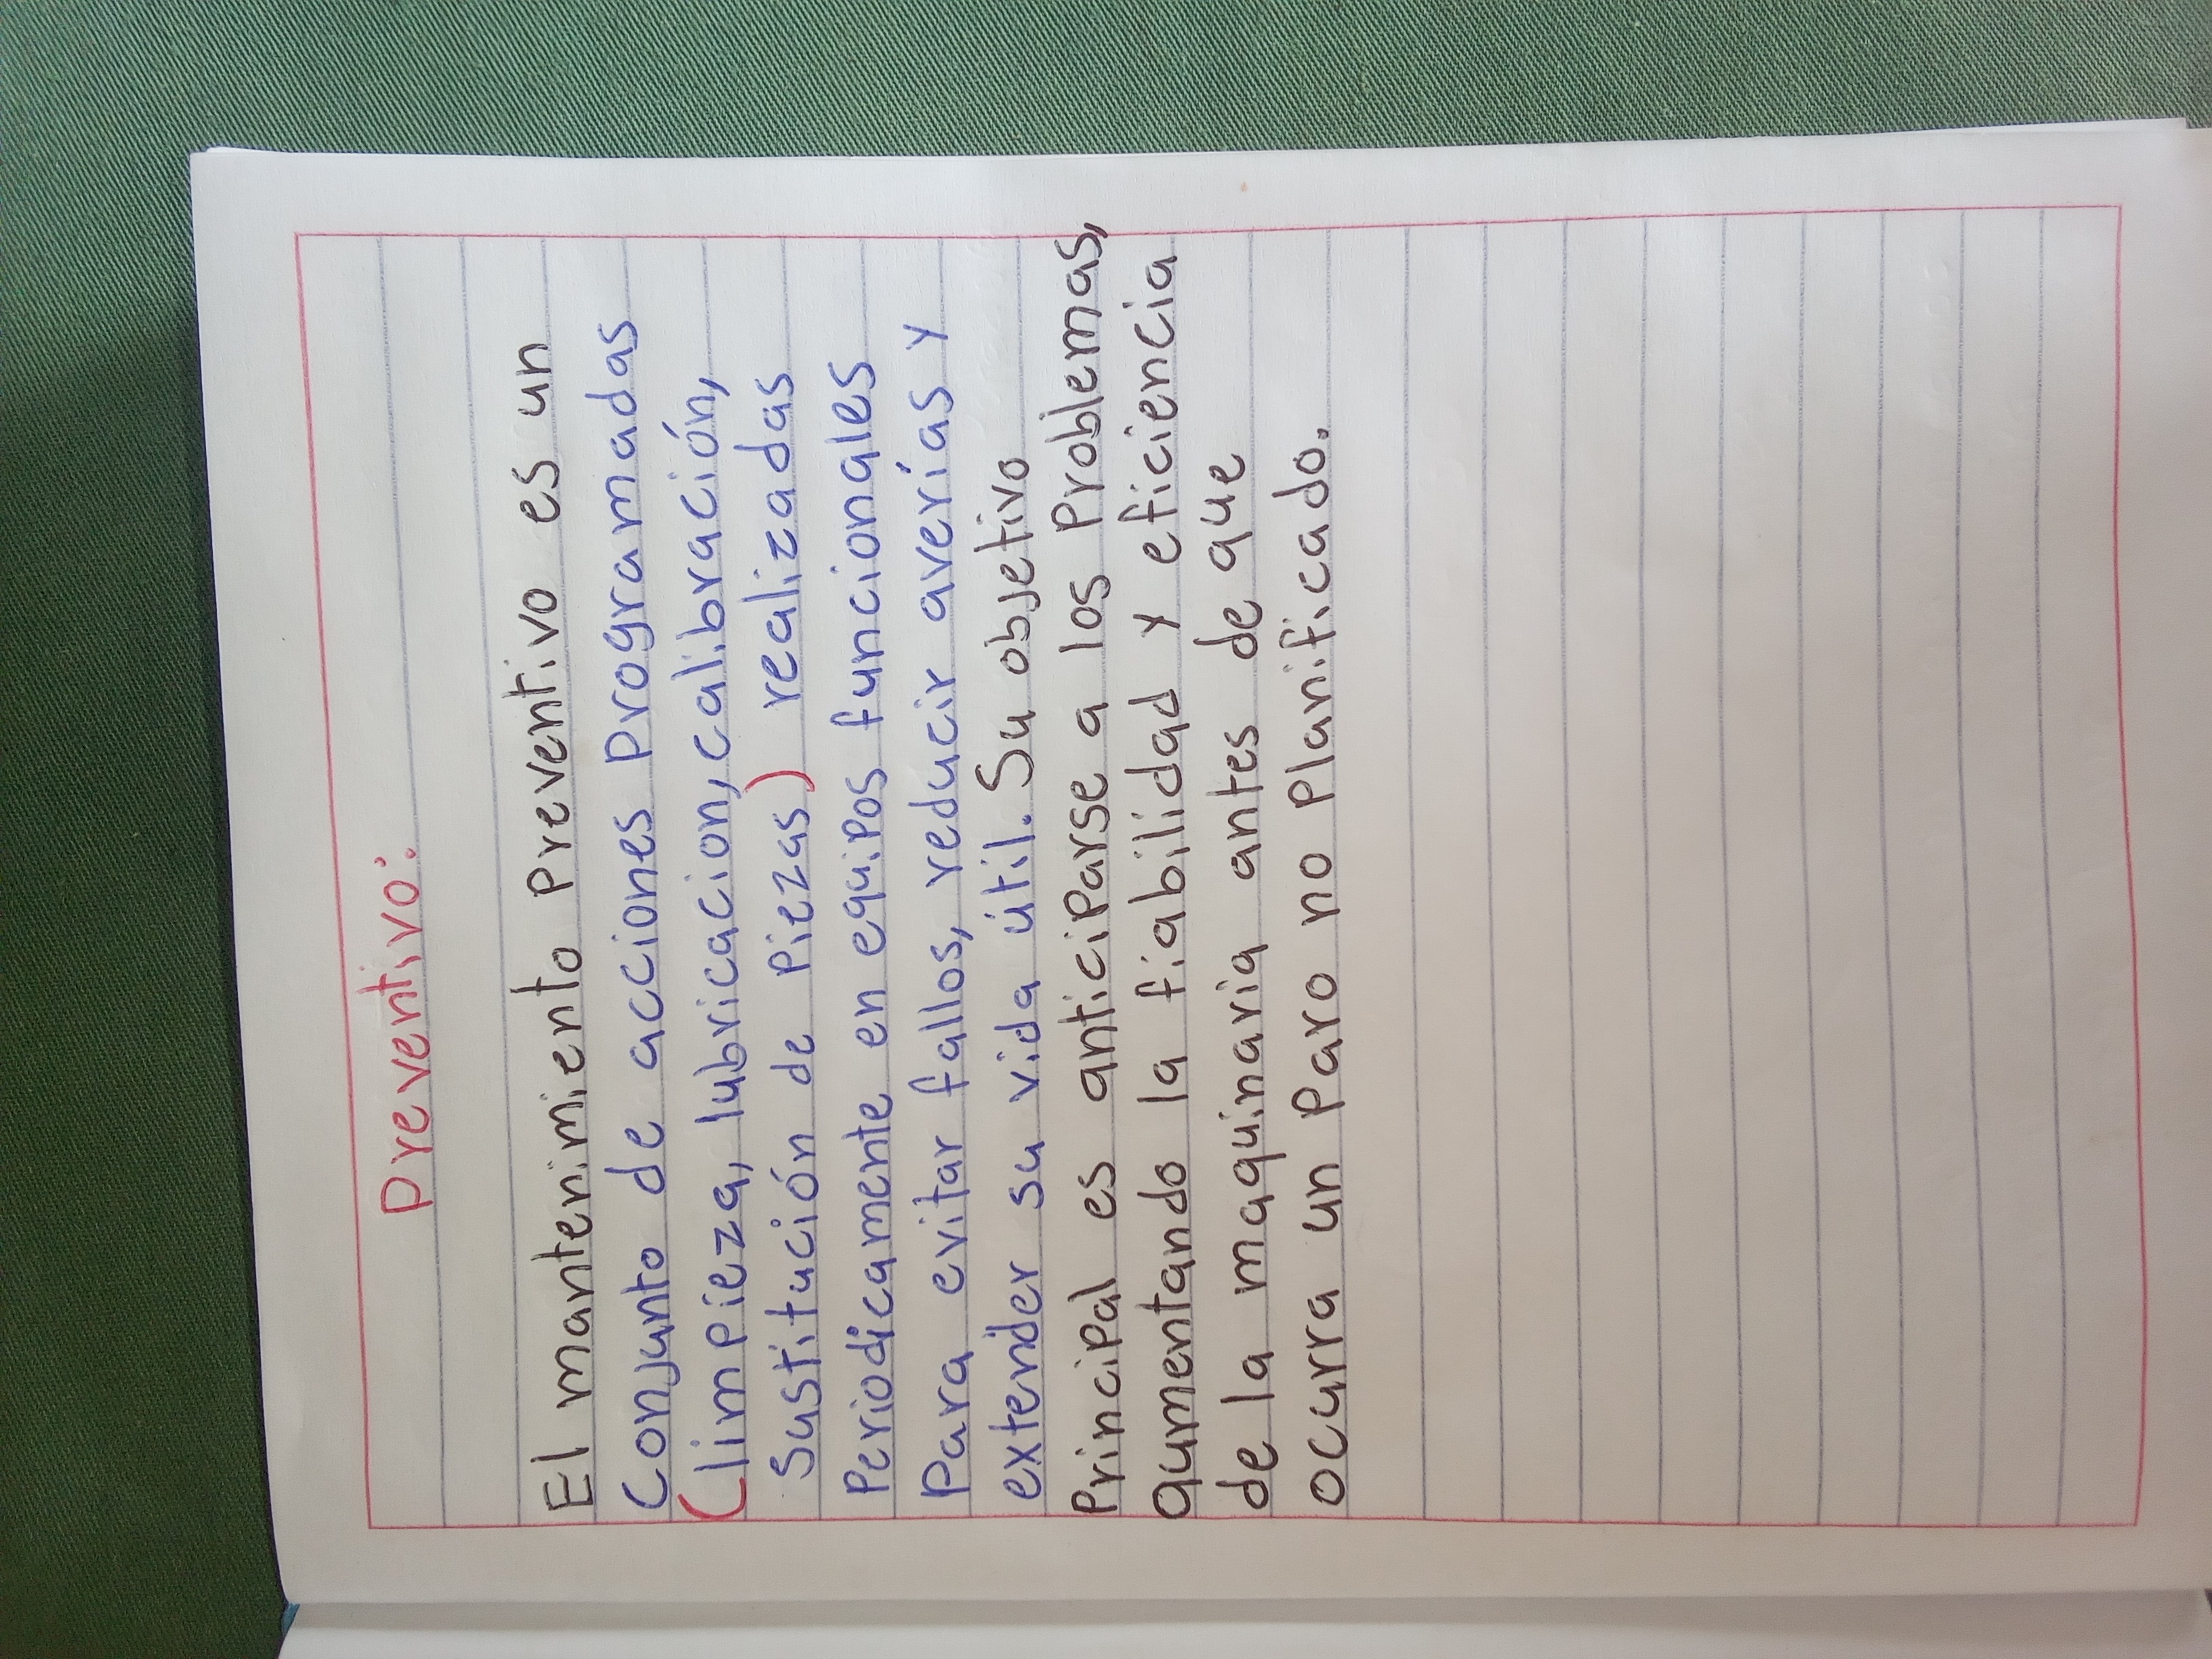 Preventivo:
El mantenimiento Preventivo es un
Conjunto de acciones Programadas
(limpieza, lubricacion, calibración,
Sustitución de Piezas) realizadas
Periodicamente en equipos funcionales
Para evitar fallos, reducir averías y
extender su vida útil. Su objetivo
Principal es anticiparse a los Problemas,
aumentando la fiabilidad y eficiencia
de la maquinaria antes de que
ocurra un Paro no Planificado.